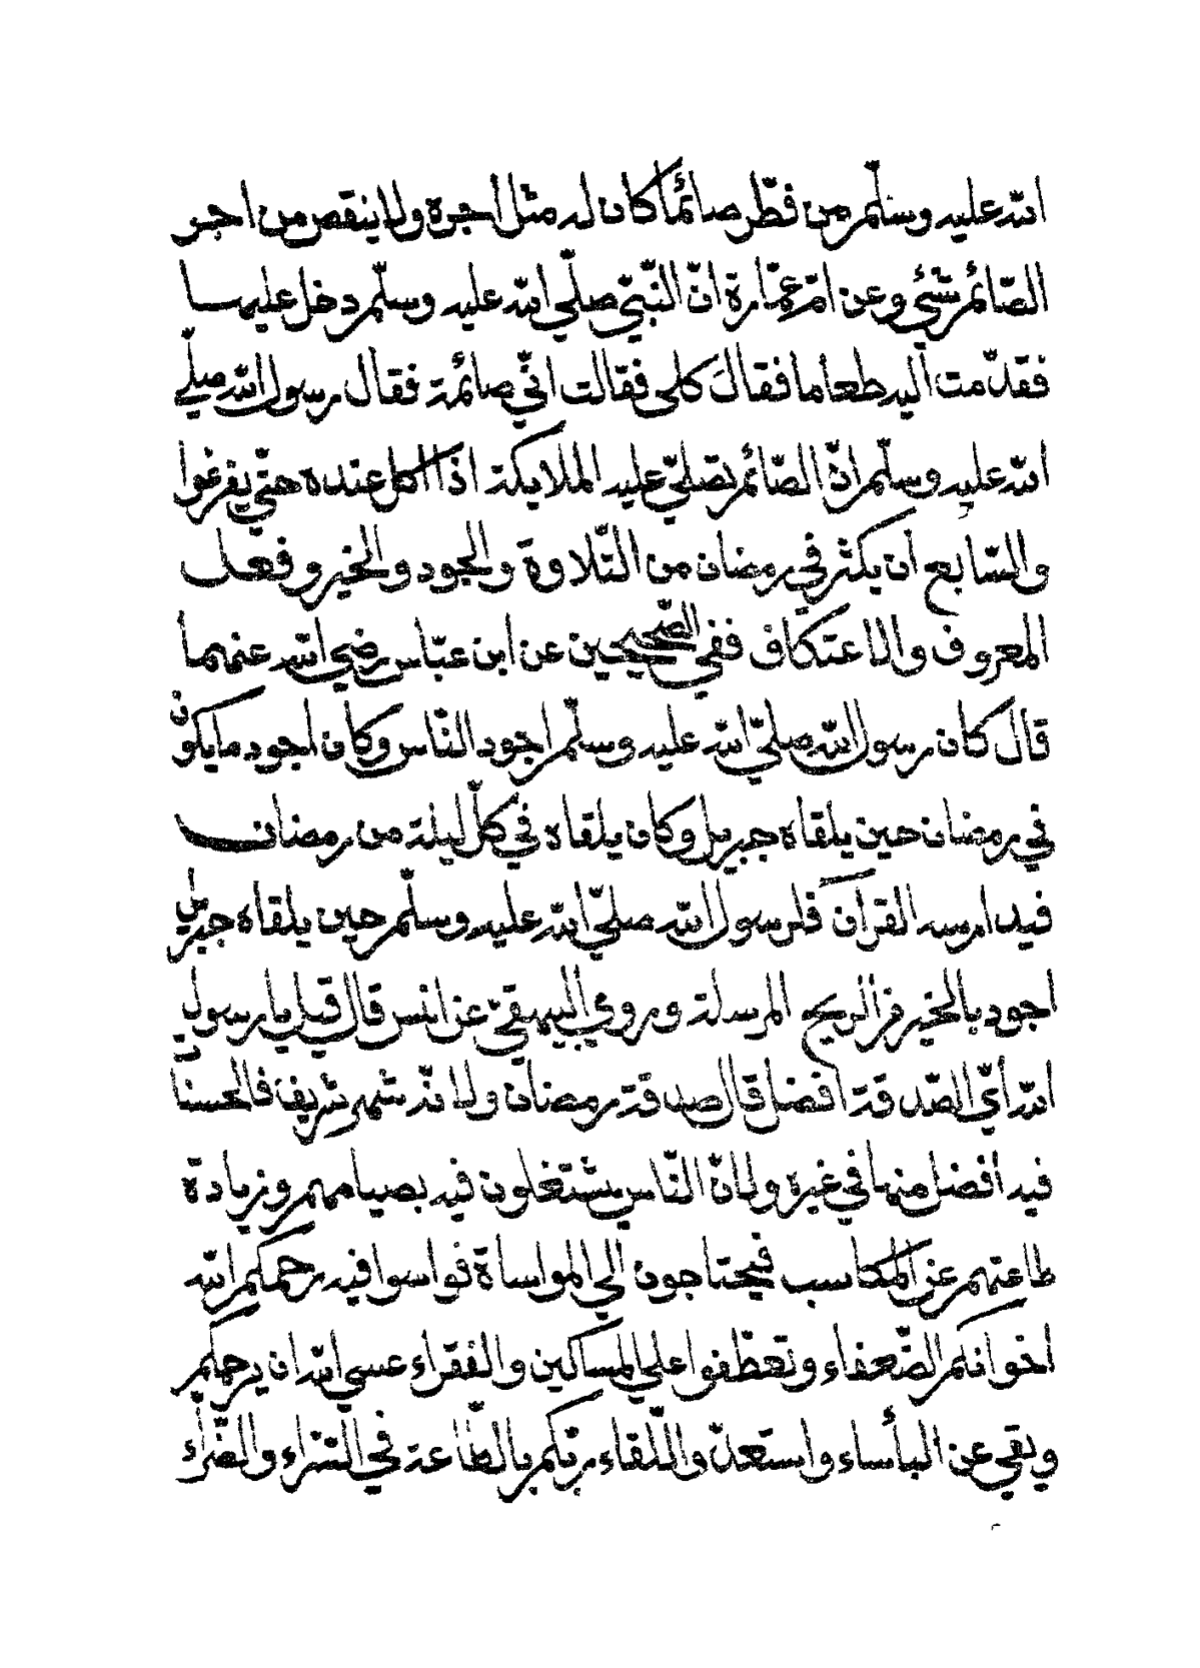 الله عليه وسلّم من فطّر صائمًا كان له مثل أجره ولا ينقص من اجر
الصّائم شئ وعن امّ عمّارة انّ النّبيّ صلّي الله عليه وسلّم دخل عليها
فقدّمت اليه طعاما فقالَ كلى فقالت انّي صائمة فقال رسول الله صلّي
الله عليه وسلّم انّ الصّائم تصلّي عليه الملايكة اذا اكل عنده حتّي يفرغوا
والسّابع أن يكثر في رمضان من التّلاوة والجود والخير وفعل
المعروف والاعتكاف ففي الصّحيحين عن ابن عبّاس رضي الله عنهما
قال كان رسول الله صلّي الله عليه وسلّم اجود النّاس وكان أجود مايكون
في رمضان حين يلقاه جبريل وكان يلقاه في كلّ ليلة من رمضان
فيدارسه القرآن فلرسول الله صلّي الله عليه وسلّم حين يلقاه جبريل
اجود بالخير من الريح المرسلة وروي البيهقيّ عن انس قال قيل يا رسول
الله أيّ الصّدقة افضل قال صدقة رمضان ولانّه شهر شريف فالحسنات
فيه أفضل منها في غيره ولانّ النّاس يشتغلون فيه بصيامهم وزيادة
طاعتهم عن المكاسب فيحتاجون الي المواساة فواسوا فيه رحمكم الله
اخوانكم الضّعفاء وتعطّفوا علي المساكين والفقراء عسي الله ان يرحمكم
ويقي عن البأساء واستعدّوا للّقاء ربّكم بالطّاعة في السّرّاء والضّرّاء